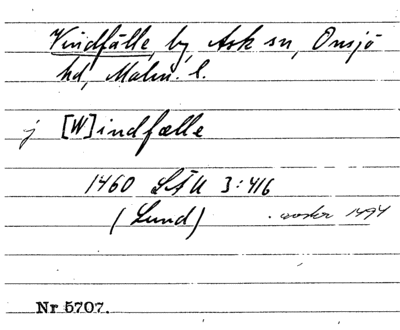 Vindfälle, by, Ask sn, Onsjö
hd, Malm. l.
j [W]indfælle
1460 LÄU 3:416
(Lund) . avskr 1494
Nr 5707.